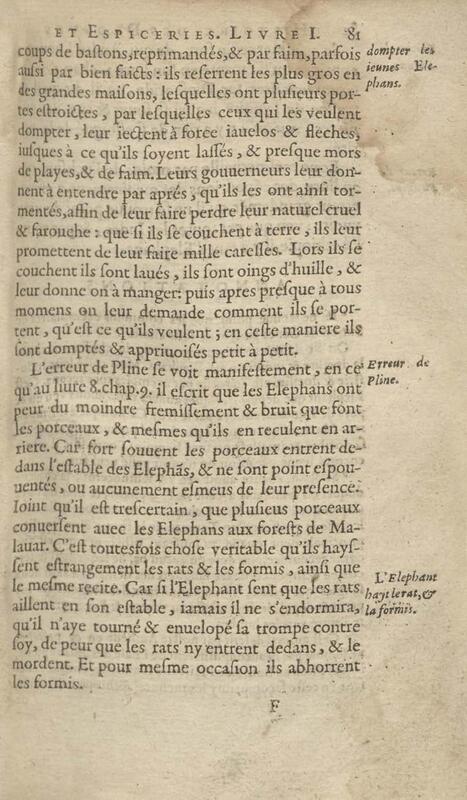 ET ESPICERIES. LIVRE I. 81
coups de bastons, reprimandés, & par faim, parfois
aussi par bien faicts : ils reserrent les plus gros en
des grandes maisons, lesquelles ont plusieurs por-
tes estroictes, par lesquelles ceux qui les veulent
dompter, leur iectent à force iauelos & fleches,
iusques à ce qu'ils soyent lassés, & presque mors
de playes, & de faim. Leurs gouuerneurs leur don-
nent à entendre par aprés, qu'ils les ont ainsi tor-
mentés, affin de leur faire perdre leur naturel cruel
& farouche : que si ils se couchent à terre, ils leur
promettent de leur faire mille caresses. Lors ils se
couchent ils sont laués, ils sont oings d'huille, &
leur donne on à manger: puis apres presque à tous
momens on leur demande comment ils se por-
tent, qu'est ce qu'ils veulent ; en ceste maniere ils
sont domptés & appriuoisés petit à petit.
L'erreur de Pline se voit manifestement, en ce
qu'au liure 8. chap. 9. il escrit que les Elephans ont
peur du moindre fremissement & bruit que font
les porceaux, & mesmes qu'ils en reculent en ar-
riere. Car fort souuent les porceaux entrent de-
dans l'estable des Elephãs, & ne sont point espou-
uentés, ou aucunement esmeus de leur presence.
Ioint qu'il est trescertain, que plusieus porceaux
conuersent auec les Elephans aux forests de Ma-
lauar. C'est toutesfois chose veritable qu'ils hays-
sent estrangement les rats & les formis, ainsi que
le mesme recite. Car si l'Elephant sent que les rats
aillent en son estable, iamais il ne s'endormira,
qu'il n'aye tourné & enuelopé sa trompe contre
soy, de peur que les rats n'y entrent dedans, & le
mordent. Et pour mesme occasion ils abhorrent
les formis.
F
dompter les
ieunes Ele-
phans.
Erreur de
Pline.
L'Elephant
hayt le rat, &
la formis.